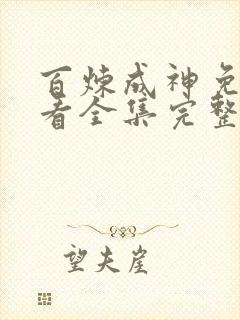 百炼成神免
看全集完整
望夫崖